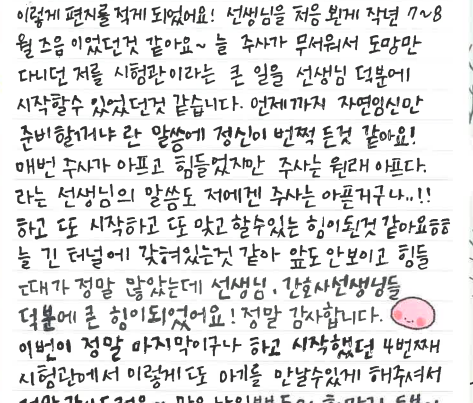 이렇게 편지를 적게 되었어요! 선생님을 처음 뵌게 작년 7~8
월 즈음 이었던것 같아요~ 늘 주사가 무서워서 도망만
다니던 저를 시험관이라는 큰 일을 선생님 덕분에
시작할수 있었던것 같습니다. 언제까지 자연임신만
준비할꺼냐 란 말씀에 정신이 번쩍 든것 같아요!
매번 주사가 아프고 힘들었지만 주사는 원래 아프다.
라는 선생님의 말씀도 저에겐 주사는 아픈거구나..!!
하고 또 시작하고 또 맞고 할수있는 힘이된것 같아요ㅎㅎ
늘 긴 터널에 갖혀있는것 같아 앞도 안보이고 힘들
때가 정말 많았는데 선생님, 간호사선생님들
덕분에 큰 힘이되었어요! 정말 감사합니다.
이번이 정말 마지막이구나 하고 시작했던 4번째
시험관에서 이렇게 또 아기를 만날수있게 해주셔서